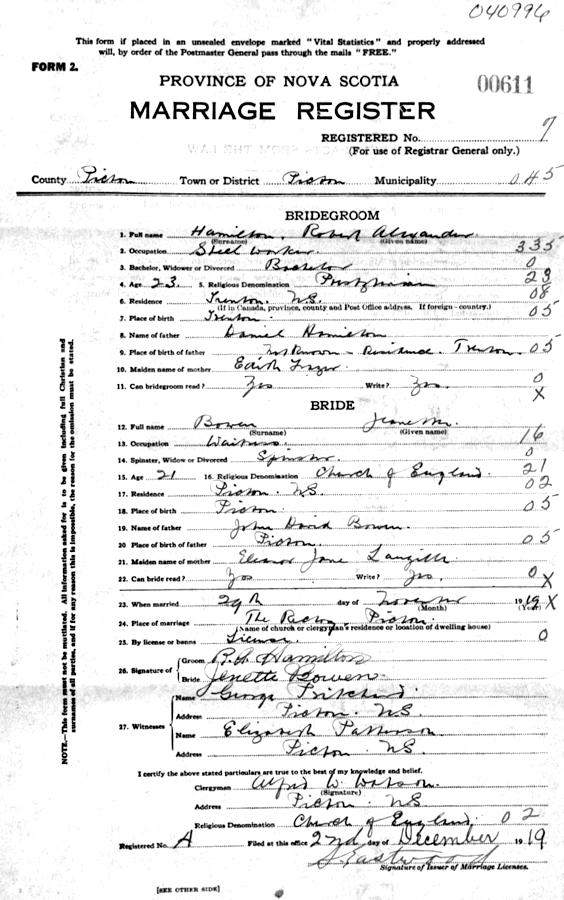 040996
This form if placed in an unsealed envelope marked "Vital Statistics" and properly addressed
will, by order of the Postmaster General pass through the mails "FREE."
FORM 2.
PROVINCE OF NOVA SCOTIA
00611
MARRIAGE REGISTER
REGISTERED No. 7
(For use of Registrar General only.)
County Pictou Town or District Pictou Municipality 045
BRIDEGROOM
1. Full name Hamilton, Robert Alexander
(Surname) (Given name)
2. Occupation Steel Worker 335
3. Bachelor, Widower or Divorced Bachelor 0
4. Age 23. 5. Religious Denomination Presbyterian 23
6. Residence Trenton. N.S. 08
(If in Canada, province, county and Post Office address. If foreign - country.)
7. Place of birth Trenton. 05
8. Name of father Daniel Hamilton
9. Place of birth of father Not Known - Residence. Trenton. 05
10. Maiden name of mother Edith Frazer
11. Can bridegroom read? Yes Write? Yes. 0
X
BRIDE
12. Full name Bowen Jeane M.
(Surname) (Given name)
13. Occupation Waitress. 16
14. Spinster, Widow or Divorced Spinster 0
15. Age 21 16. Religious Denomination Church of England. 21
17. Residence Pictou. N.S. 02
18. Place of birth Pictou. 05
19. Name of father John David Bowen.
20 Place of birth of father Pictou. 05
21. Maiden name of mother Eleanor Jane
22. Can bride read? Yes Write? Yes. 0 X
23. When married 29th day of November 1919 X
(Month) (Year)
24. Place of marriage The Rectory Pictou.
(Name of church or clergyman's residence or location of dwelling house)
25. By license or banns License. 0
26. Signature of Groom R.A. Hamilton
Bride Jenette Bowen
27. Witnesses Name George Pritchard
Address Pictou. N.S.
Name Elizabeth Patterson
Address Pictou. N.S.
I certify the above stated particulars are true to the best of my knowledge and belief.
Clergyman Alfred W. Watson.
(Signature)
Address Pictou. N.S.
Religious Denomination Church of England. 02
Registered No. A Filed at this office 2nd day of December 1919
Eastwood
Signature of Issuer of Marriage Licenses.
[SEE OTHER SIDE]
NOTE.—This form must not be mutilated. All information asked for is to be given including full Christian and
surnames of all parties, and if for any reason this is impossible, the reason for the omission must be stated.